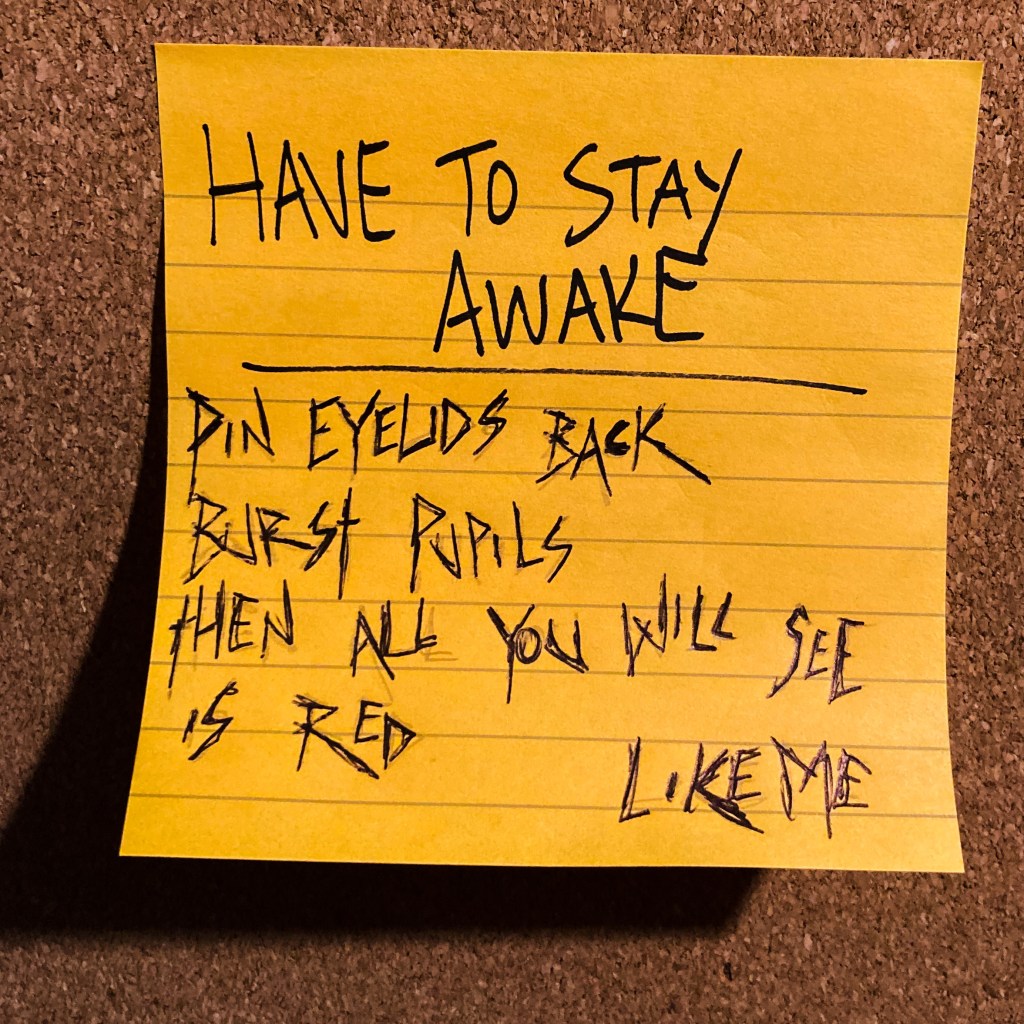 HAVE TO STAY
AWAKE
PIN EYELIDS BACK
BURST PUPILS
tHEN ALL YOU WILL SEE
iS RED
LiKE ME